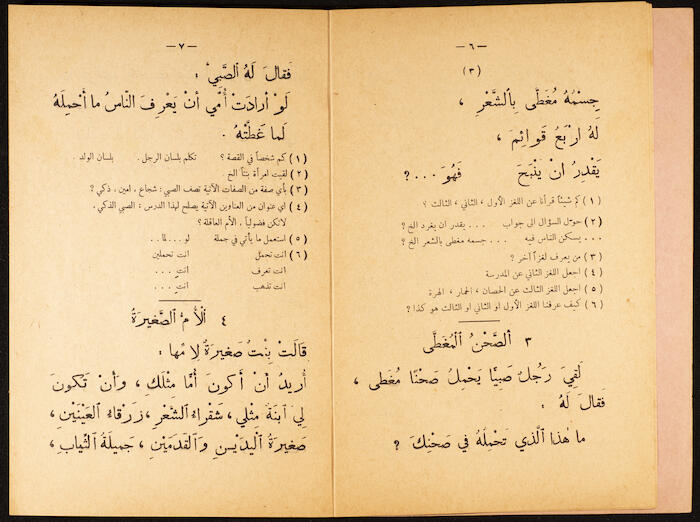 — ٦ —
(٣)
جِسْمُهُ مُغَطَّى بِالشَّعْرِ ،
لَهُ ارْبَعُ قَوائِمَ ،
يَقْدِرُ انْ يَنْبَحَ فَهُوَ ...؟
(١) كم شيئاً قرأنا عن اللغز الأول ، الثاني ، الثالث ؟
(٢) حوّل السؤال الى جواب ... يقدر ان يغرد الخ ؟
... يسكن الناس فيه ... جسمه مغطى بالشعر الخ ؟
(٣) من يعرف لغزاً آخر ؟
(٤) اجعل اللغز الثاني عن المدرسة
(٥) اجعل اللغز الثالث عن الحصان ، الحمار ، الهرة
(٦) كيف عرفنا اللغز الأول او الثاني او الثالث هو كذا ؟
٣ الصَّحْنُ المُغَطَّى
لَقِيَ رَجُلٌ صَبِيًّا يَحْمِلُ صَحْنًا مُغَطى ،
فَقالَ لَهُ :
ما هٰذا الَّذي تَحْمِلُهُ في صَحْنِكَ ؟
— ٧ —
فَقالَ لَهُ الصَّبِيُّ :
لَوْ أرادَتْ أُمّي أنْ يَعْرِفَ النّاسُ ما أحْمِلُهُ
لَما غَطَّتْهُ .
(١) كم شخصاً في القصة ؟ تكلم بلسان الرجل . بلسان الولد .
(٢) لقيت امرأة بنتاً الخ
(٣) بأي صفة من الصفات الآتية تصف الصبي : شجاع ، امين ، ذكي ؟
(٤) اي عنوان من العناوين الآتية يصلح لهذا الدرس : الصبي الذكي ،
لاتكن فضولياً ، الأم العاقلة ؟
(٥) استعمل ما يأتي في جملة لو...لما..
(٦) انت تحمل انت تحملين
انت تعرف انتِ ...
انت تذهب انتِ ...
٤ الْأُمُّ الصَّغيرَةُ
قالَتْ بِنْتٌ صَغيرَةٌ لِامِّها :
أُريدُ أنْ أكونَ أُمًّا مِثْلَكِ ، وَأنْ تَكونَ
لي ابْنَةٌ مِثْلي ، شَقْراءُ الشَّعْرِ ، زَرْقاءُ العَيْنَيْنِ ،
صَغيرَةُ الْيَدَيْنِ وَالقَدَمَيْنِ ، جَميلَةُ الثِّيابِ ،